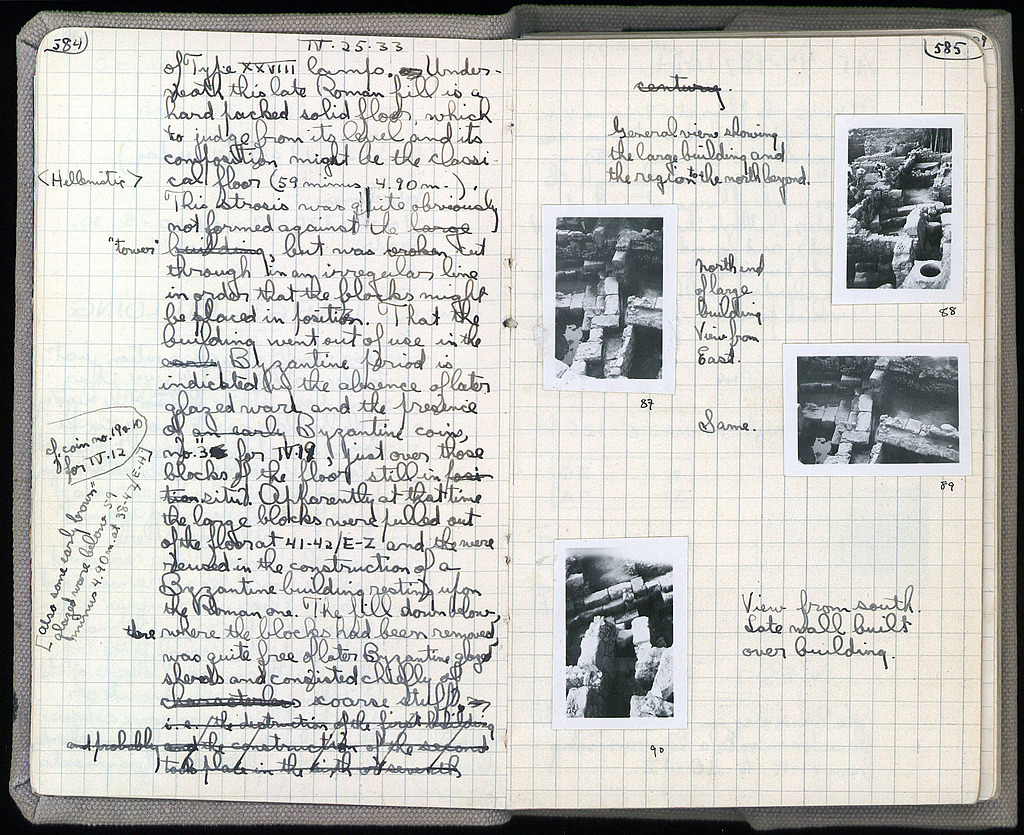 584
IV.25.33
of Type XXVIII lamps. Under-
neath this late Roman fill is a
hard packed solid floor, which
to judge from its level and its
composition might be the classi-
<Hellenistic>
cal floor (59 minus 4.90 m.).
This strosis was quite obviously
not formed against the large
"tower"
building, but was broken cut
through in an irregular line
in order that the blocks might
be placed in position. That the
building went out of use in the
early Byzantine Period is
indicated by the absence of later
glazed ware and the presence
of an early Byzantine coin,
no. 3 for IV.19, just over those
blocks of the floor still in posi-
tion situ. Apparently at that time
the large blocks were pulled out
of the floor at 41-42/E-Z and the were
reused in the construction of a
Byzantine building resting upon
the Roman one. The fill down below
there where the blocks had been removed
was quite free of later Byzantine glazed
sherds and consisted chiefly of
characterless coarse stuff,
i.e. the destruction of the first building
and probably and the construction of the second
took place in the sixth or seventh
cf. coin no. 19 & 10
for IV.12
[also some early brown-
glazed ware below 59
minus 4.90 m. at 38-43/E-H]
585
century.
General view showing
the large building and
the region to the north beyond.
88
North end
of large
building
View from
East.
87
Same.
89
View from south.
Late wall built
over building.
90